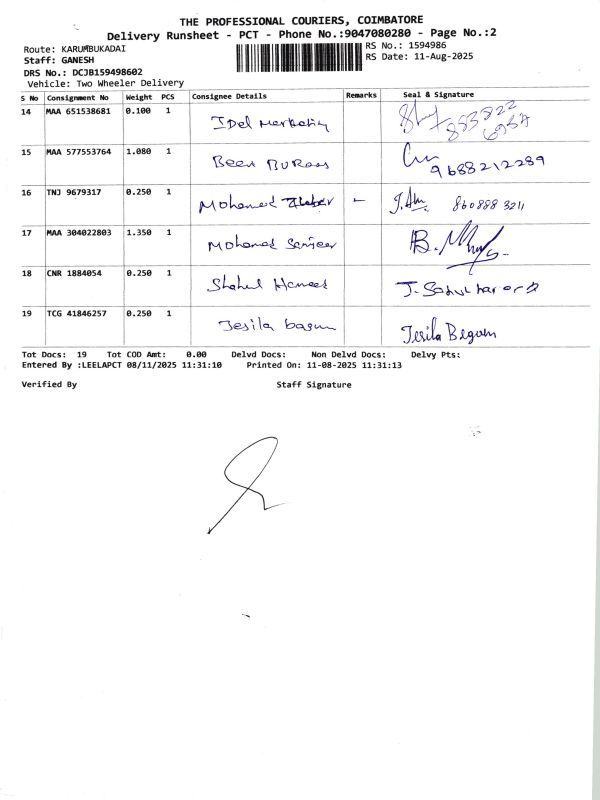 THE PROFESSIONAL COURIERS, COIMBATORE
Delivery Runsheet - PCT - Phone No.:9047080280 - Page No.:2
Route: KARUMBUKADAI
RS No.: 1594986
Staff: GANESH
RS Date: 11-Aug-2025
DRS No.: DCJB159498602
Vehicle: Two Wheeler Delivery
S No Consignment No Weight PCS Consignee Details Remarks Seal & Signature
14 MAA 651538681 0.100 1 IDel Marketing 853822
15 MAA 577553764 1.080 1 Been 9688212289
16 TNJ 9679317 0.250 1 Mohamed - 860888 3211
17 MAA 304022803 1.350 1 Mohamed Sanjeer
18 CNR 1884054 0.250 1 Shahul Hameed
19 TCG 41846257 0.250 1 Jesila bagum Jesila Begum
Tot Docs: 19 Tot COD Amt: 0.00 Delvd Docs: Non Delvd Docs: Delvy Pts:
Entered By :LEELAPCT 08/11/2025 11:31:10 Printed On: 11-08-2025 11:31:13
Verified By Staff Signature